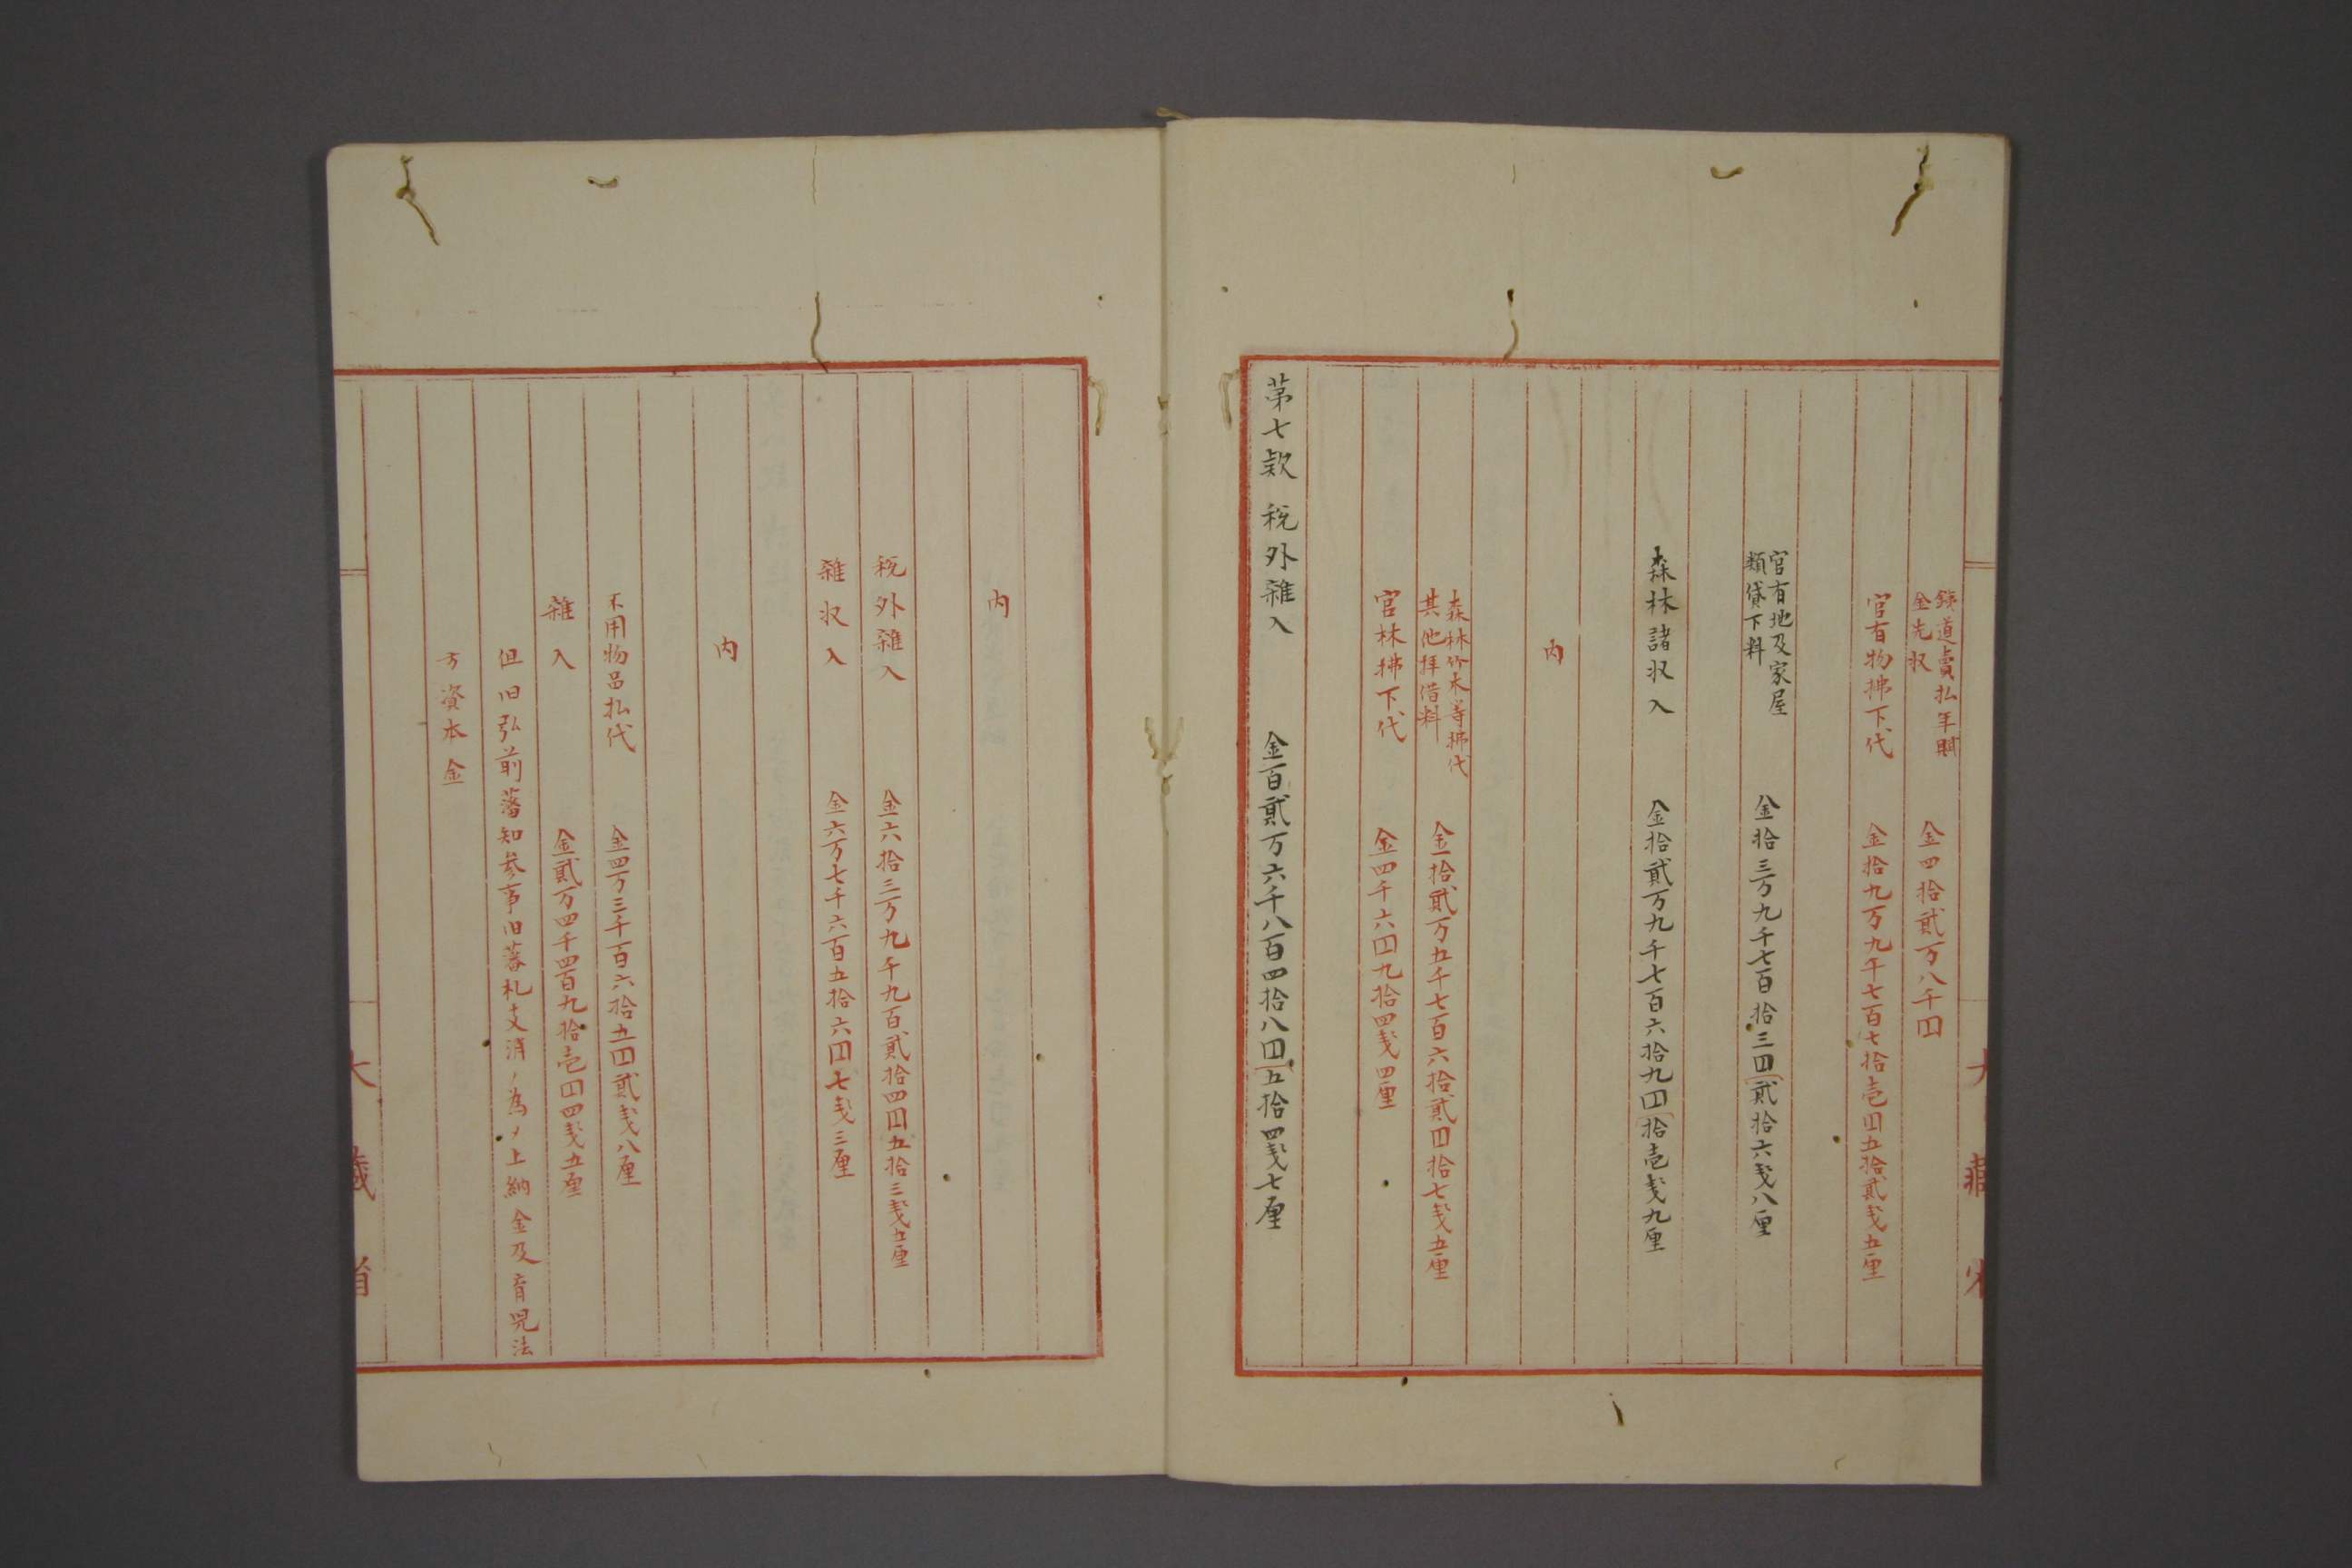 鉄道賣払年賦
金先収 金四拾貳万八千円
官有物拂下代 金拾九万九千七百七拾壱円五拾貳戋五厘
官有地及家屋
類貸下料 金拾三万九千七百拾三円貳拾六戋八厘
森林諸収入 金拾貳万九千七百六拾九円拾壱戋九厘
内
森林竹木等拂代
其他拝借料 金拾貳万五千七百六拾貳円拾七戋五厘
官林拂下代 金四千六円九拾四戋四厘
第七款 税外雜入 金百貳万六千八百四拾八円五拾四戋七厘
内
税外雜入 金六拾三万九千九百貳拾四円五拾三戋五厘
雜収入 金六万七千六百五拾六円七戋三厘
内
不用物品払代 金四万三千百六拾五円貳戋八厘
雜入 金貳万四千四百九拾壱円四戋五厘
但旧弘前藩知参事旧藩札支消ノ為メ上納金及育児法
方資本金
大藏省